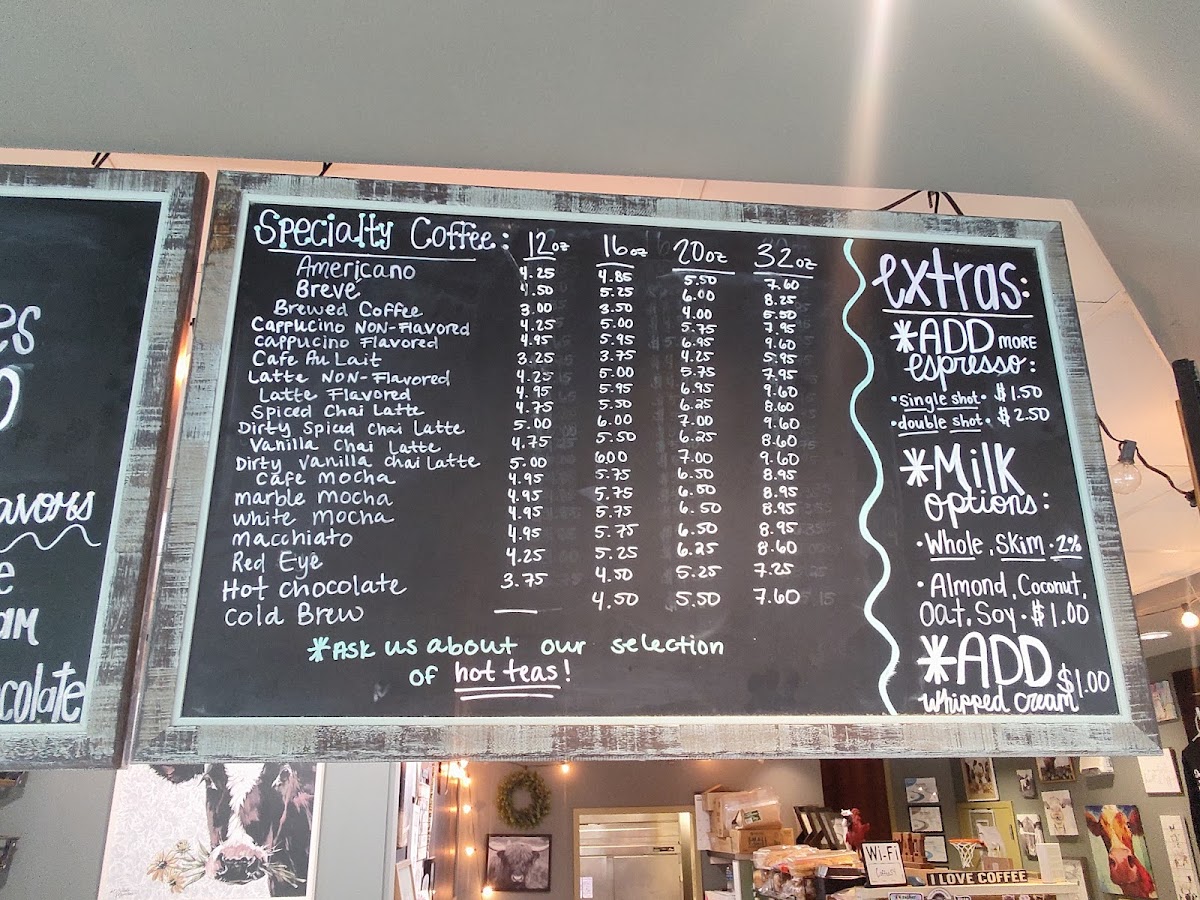 es
O
avors
e
am
colate
Specialty Coffee: 12oz 16oz 20oz 32oz
Americano 4.25 4.85 5.50 7.60
Breve 4.50 5.25 6.00 8.25
Brewed Coffee 3.00 3.50 4.00 5.50
Cappucino NON-Flavored 4.25 5.00 5.75 7.95
cappucino Flavored 4.95 5.95 6.95 9.60
Cafe Au Lait 3.25 3.75 4.25 5.95
Latte NON-Flavored 4.25 5.00 5.75 7.95
Latte Flavored 4.95 5.95 6.95 9.60
Spiced Chai Latte 4.75 5.50 6.25 8.60
Dirty Spiced Chai Latte 5.00 6.00 7.00 9.60
Vanilla Chai Latte 4.75 5.50 6.25 8.60
Dirty Vanilla Chai Latte 5.00 600 7.00 9.60
Cafe mocha 4.95 5.75 6.50 8.95
marble mocha 4.95 5.75 6.50 8.95
white mocha 4.95 5.75 6.50 8.95
macchiato 4.95 5.75 6.50 8.95
Red Eye 4.25 5.25 6.25 8.60
Hot chocolate 3.75 4.50 5.25 7.25
Cold Brew — 4.50 5.50 7.60
*Ask us about our selection
of hot teas!
extras:
*ADD MORE
espresso:
•single shot• $1.50
•double shot• $2.50
*Milk
options:
•Whole, Skim•2%
•Almond, Coconut,
Oat, Soy•$1.00
*ADD
whipped cream $1.00
Wi-Fi
I LOVE COFFEE